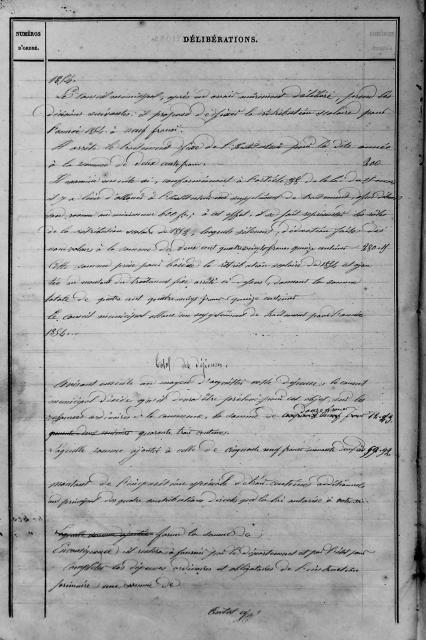 NUMÉROS
D'ORDRE.
DÉLIBÉRATIONS.
1854.
Le Conseil municipal, après en avoir mûrement délibéré, prend les
décisions suivantes: il propose de fixer la rétribution scolaire pour
l'année 1854 à neuf francs.
Il arrête le traitement fixe de l'Instituteur pour la dite année
à la somme de deux cents francs. 200
Il examine ensuite si, conformément à l'article 38 de la loi du 15 mars
il y a lieu d'allouer à l'Instituteur un supplément de traitement
au minimum 600 fr.; à cet effet, il se fait représenter les rôles
de la rétribution scolaire de 1853, lesquels s'élèvent, déduction faite des
non valeurs à la somme de deux cent quatre vingts francs quinze centimes 280.15
Cette somme prise pour base de la rétribution scolaire de 1854 et ajoutée
au montant du traitement fixe, arrêté ci-dessus, donnent la somme
totale de quatre cent quatre vingts francs quinze centimes
Le conseil municipal alloue un supplément de traitement pour l'année
1854
Total des dépenses.
Avisant ensuite au moyen d'acquitter cette dépense, le conseil
municipal décide qu'il devra être prélevé pour cet objet, sur les
ressources ordinaires de la commune, la somme de douze francs 12.43
quarante trois centimes.
Laquelle somme ajoutée à celle de cinquante neuf francs 59.92
montant de l'imposition spéciale de trois centimes additionnels
au principal des quatre contributions directes que la loi autorise à voter
forme la somme de
En conséquence, il restera à fournir par le département et par l'état pour
compléter les dépenses ordinaires et obligatoires de l'instruction
primaire une somme de
Total